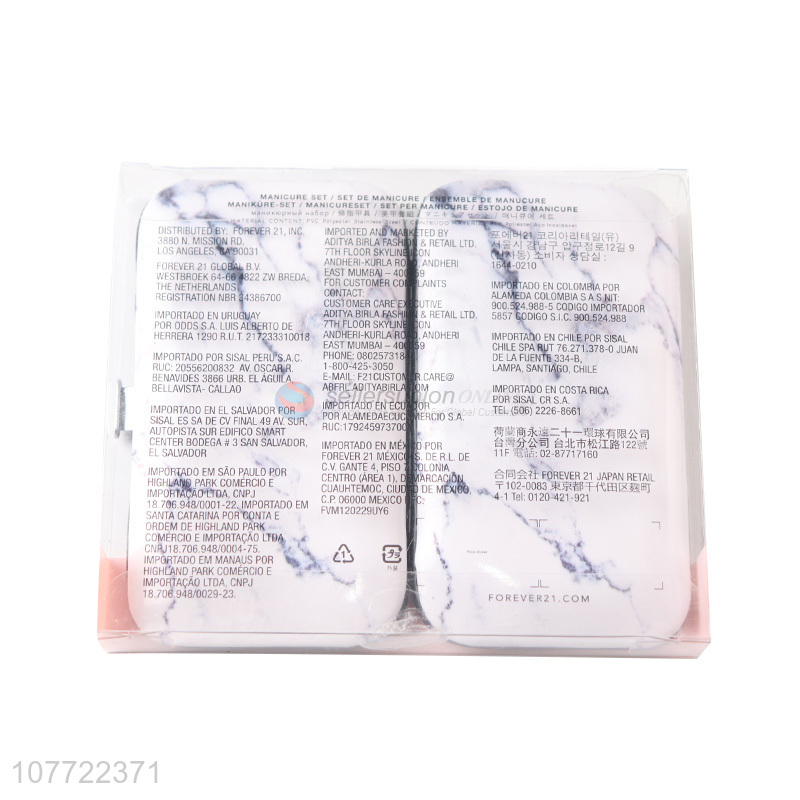 MANICURE SET / SET DE MANICURE / ENSEMBLE DE MANUCURE
MANIKÜRE-SET / MANICURESET / SET PER MANICURE / ESTOJO DE MANICURE
маникюрный набор /
MATERIAL CONTENT: PVC, Polyester, Stainless Steel /
DISTRIBUTED BY: FOREVER 21, INC.
3880 N. MISSION RD.
LOS ANGELES, CA 90031
FOREVER 21 GLOBAL B.V.
WESTBROEK 64-66 4822 ZW BREDA,
THE NETHERLANDS
REGISTRATION NBR 34386700
IMPORTADO EN URUGUAY
POR ODDS S.A. LUIS ALBERTO DE
HERRERA 1290 R.U.T 217233310018
IMPORTADO POR SISAL PERU S.A.C.
RUC: 20556200832 AV. OSCAR R.
BENAVIDES 3866 URB. EL ÁGUILA,
BELLAVISTA- CALLAO
IMPORTADO EN EL SALVADOR POR
SISAL ES SA DE CV FINAL 49 AV. SUR,
AUTOPISTA SUR EDIFICO SMART
CENTER BODEGA # 3 SAN SALVADOR,
EL SALVADOR
IMPORTADO EM SÃO PAULO POR
HIGHLAND PARK COMÉRCIO E
IMPORTAÇÃO LTDA, CNPJ
18.706.948/0001-22, IMPORTADO EM
SANTA CATARINA POR CONTA E
ORDEM DE HIGHLAND PARK
COMÉRCIO E IMPORTAÇÃO LTDA
CNPJ.18.706.948/0004-75.
IMPORTADO EM MANAUS POR
HIGHLAND PARK COMÉRCIO E
IMPORTAÇÃO LTDA, CNPJ
18.706.948/0029-23.
IMPORTED AND MARKETED BY
ADITYA BIRLA FASHION & RETAIL LTD.
7TH FLOOR SKYLINE ICON
ANDHERI-KURLA ROAD, ANDHERI
EAST MUMBAI – 400059
FOR CUSTOMER COMPLAINTS
CONTACT:
CUSTOMER CARE EXECUTIVE
ADITYA BIRLA FASHION & RETAIL LTD.
7TH FLOOR SKYLINE ICON
ANDHERI-KURLA ROAD, ANDHERI
EAST MUMBAI – 400059
PHONE:
1-800-425-3050
E-MAIL: F21CUSTOMER.CARE@
ABFRL.ADITYABIRLA.COM
IMPORTADO EN ECUADOR
POR ALAMEDAECUCOMERCIO S.A.
RUC:
IMPORTADO EN MÉXICO POR
FOREVER 21 MÉXICO S. DE R.L. DE
C.V. GANTE 4, PISO 7 COLONIA
CENTRO (ÁREA 1), DEMARCACIÓN
CUAUHTEMOC, CIUDAD DE MÉXICO,
C.P. 06000 MEXICO RFC:
FVM120229UY6
포에버21 코리아리테일(유)
서울시 강남구 압구정로12길 9
(신사동) 소비자 상담실 :
1644-0210
IMPORTADO EN COLOMBIA POR
ALAMEDA COLOMBIA S A S NIT:
900.524.988-5 CODIGO IMPORTADOR
5857 CODIGO S.I.C. 900.524.988
IMPORTADO EN CHILE POR SISAL
CHILE SPA RUT 76.271.378-0 JUAN
DE LA FUENTE 334-B,
LAMPA, SANTIAGO, CHILE
IMPORTADO EN COSTA RICA
POR SISAL CR S.A.
TEL (506) 2226-8661
荷蘭商永遠二十一環球有限公司
台灣分公司 台北市松江路122號
11F 電話: 02-87717160
合同会社 FOREVER 21 JAPAN RETAIL
〒102-0083 東京都千代田区麹町
4-1 Tel: 0120-421-921
FOREVER21.COM
sellersunion ONLINE
107722371